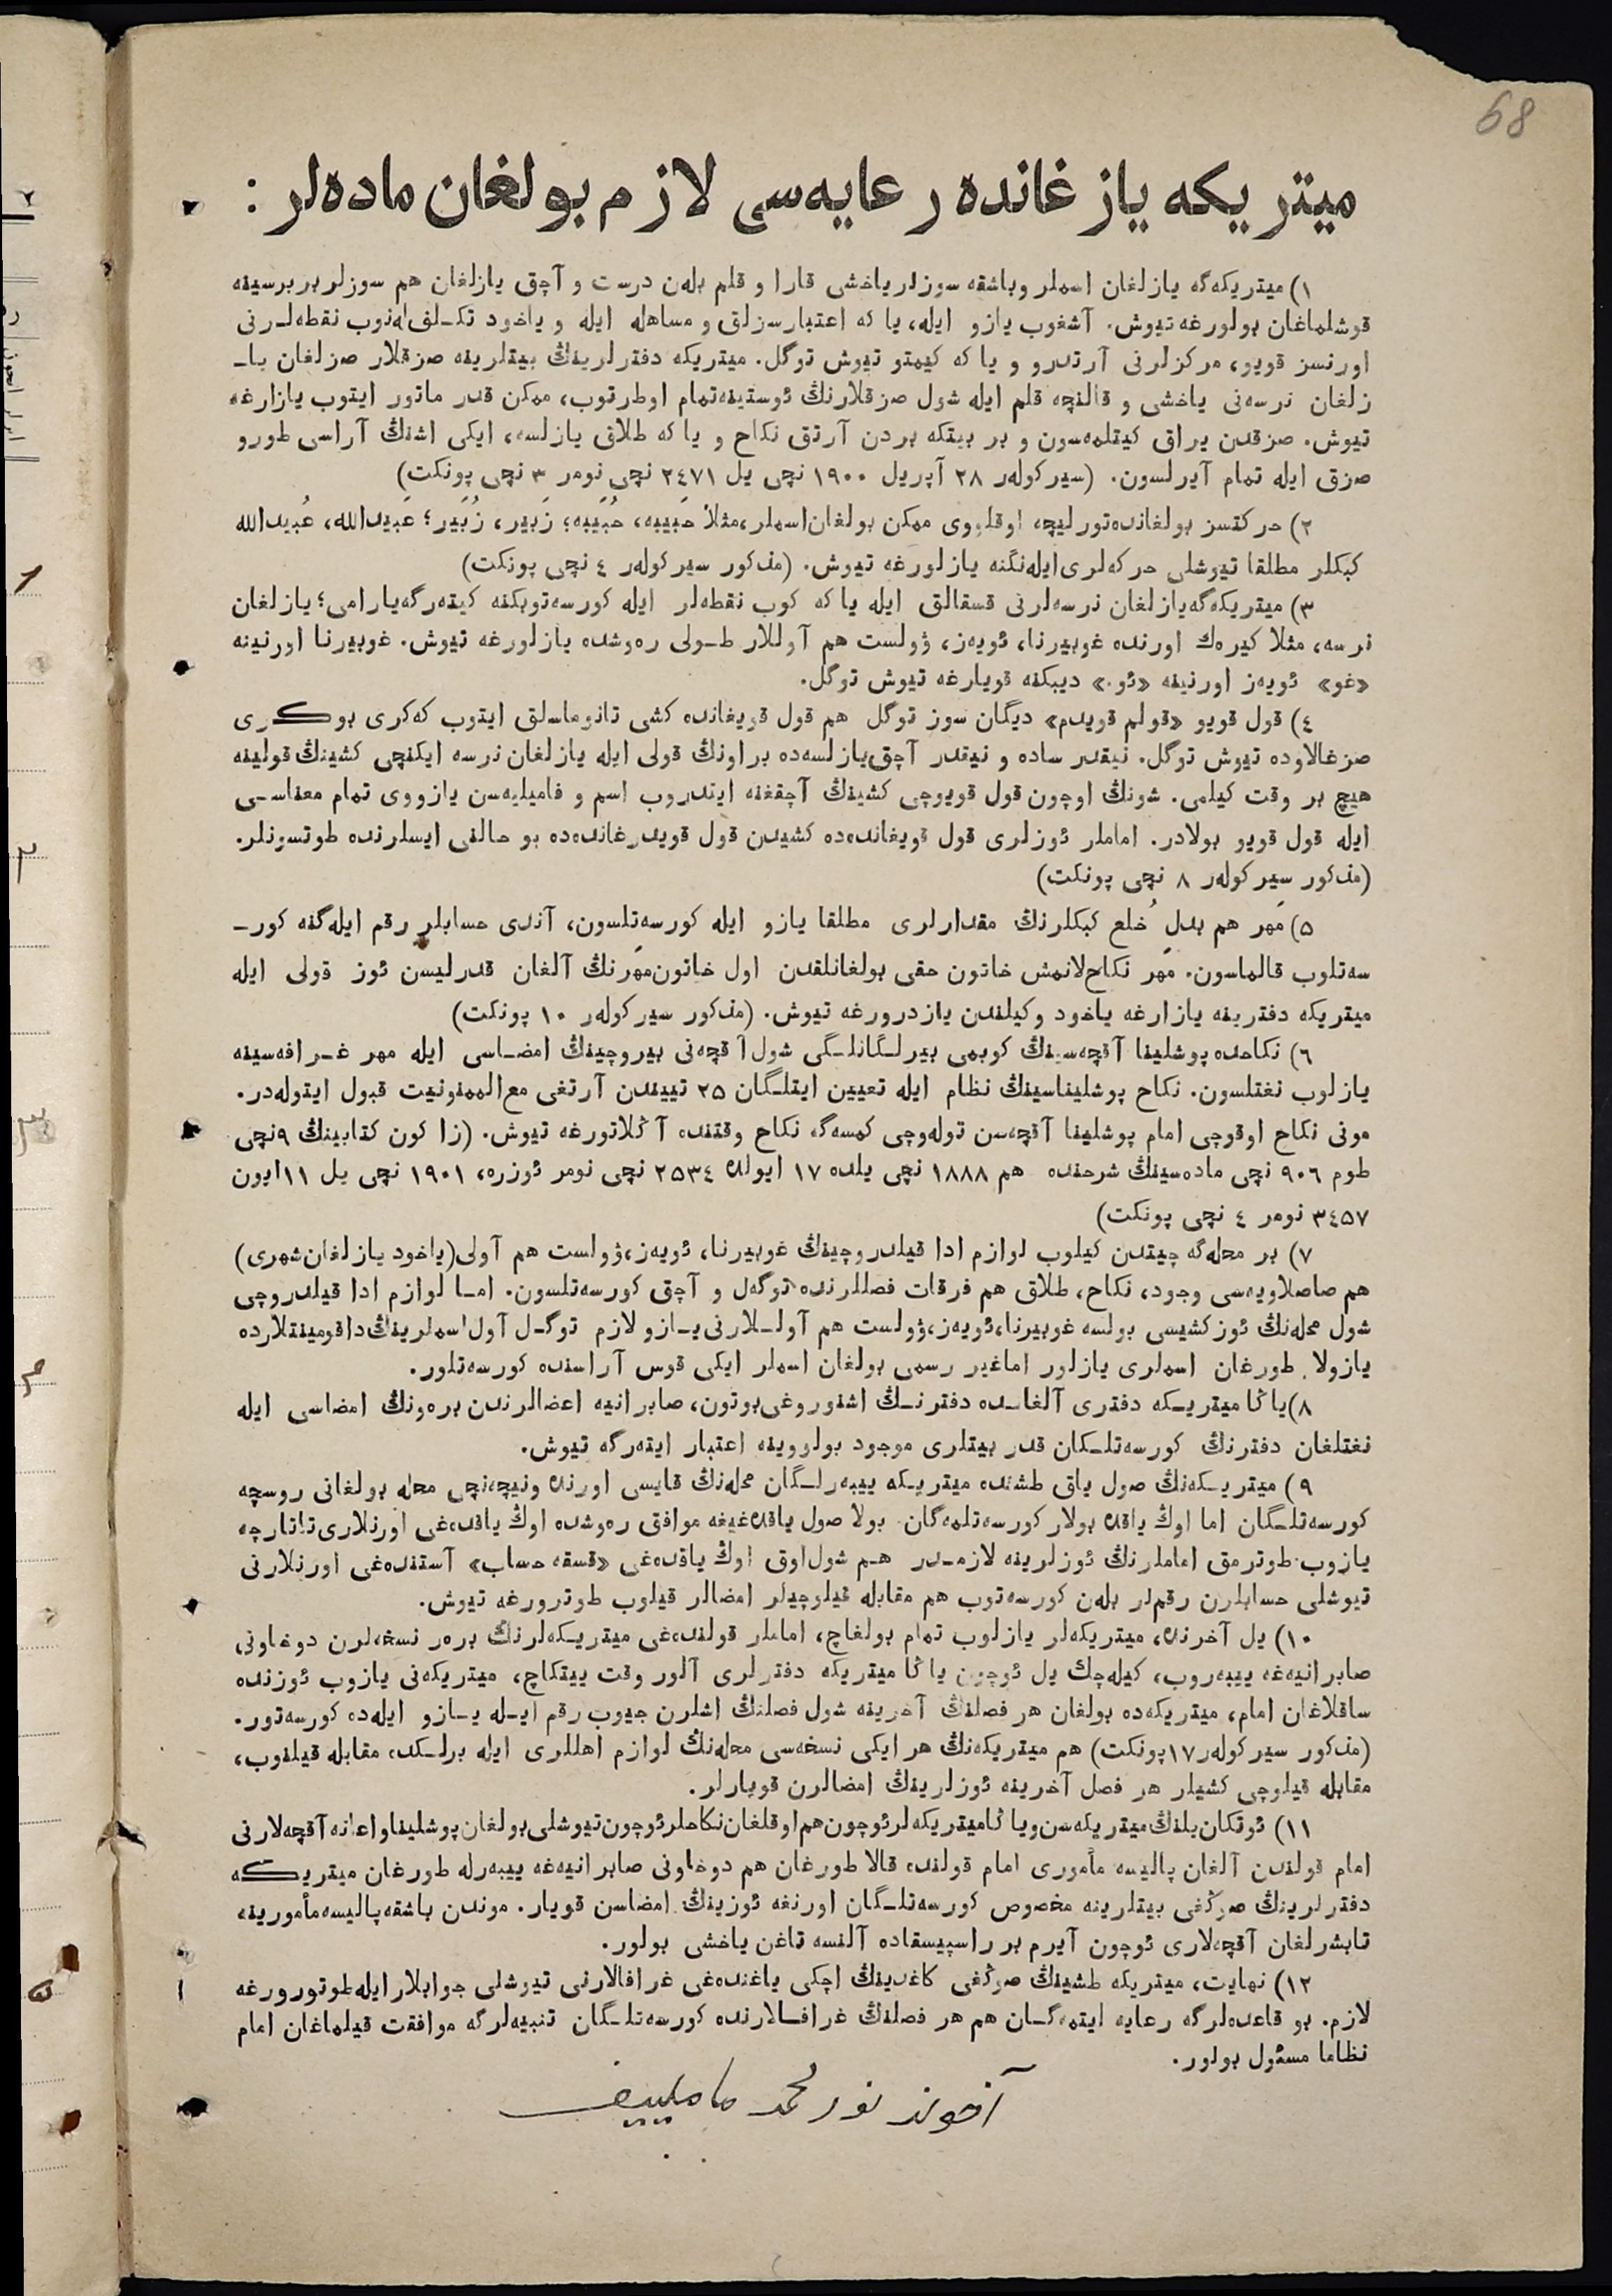 68
میتریکه یازغانده رعایه‌سی لازم بولغان ماده‌لر :
۱) میتریکه‌گه یازلغان اسملر وباشقه سوزلر یاخشی قارا و قلم بله‌ن درست و آچق یازلغان هم سوزلر بربرسینه
قوشلماغان بولورغه تیوش. آشغوب یازو ایله، یا که اعتبارسزلق و مساهله ایله و یاخود تکلف‌له‌نوب نقطه‌لرنی
اورنسز قویو، مرکزلرنی آرتدرو و یا که کیمتو تیوش توگل. میتریکه دفترلرینڭ بیتلرینه صزقلار صزلغان یا‌ـ
زلغان نرسه‌نی یاخشی و قالنچه قلم ایله شول صزقلارنڭ ئوستینه‌تمام اوطرتوب، ممکن قدر ماتور ایتوب یازارغه
تیوش. صزقدن یراق کیتلمه‌سون و بر بیتکه بردن آرتق نکاح و یا که طلاق یازلسه، ایکی اشنڭ آراسی طورو
صزق ایله تمام آیرلسون. (سیرکوله‌ر ۲۸ آپریل ۱۹۰۰ نچی یل ۲٤۷۱ نچی نومر ۳ نچی پونکت)
۲) حرکتسز بولغانده‌تورلیچه اوقلووی ممکن بولغان‌اسملر،مثلا حَبیبه، حُبَیبه؛ زَبیر، زُبَیر؛ عَبیدالله، عُبیدالله
کبکلر مطلقا تیوشلی حرکه‌لری‌ایله‌نگنه یازلورغه تیوش. (مذکور سیرکوله‌ر ٤ نچی پونکت)
۳) میتریکه‌گه‌یازلغان نرسه‌لرنی قسقالق ایله یا که کوب نقطه‌لر ایله کورسه‌توبکنه کیته‌رگه‌یارامی؛ یازلغان
نرسه، مثلا کیره‌ك اورنده غوبیرنا، ئویه‌ز، ۋولست هم آوللار طولی ره‌وشده یازلورغه تیوش. غوبیرنا اورنینه
«غو» ئویه‌ز اورنینه «ئو.» دیبکنه قویارغه تیوش توگل.
٤) قول قویو «قولم قویدم» دیگان سوز توگل هم قول قویغانده کشی تانوماسلق ایتوب که‌کری بوکری
صزغالاوده تیوش توگل. نیقدر ساده و نیقدر آچق‌یازلسه‌ده براونڭ قولی ایله یازلغان نرسه ایکنچی کشینڭ قولینه
هیچ بر وقت کیلمی. شونڭ اوچون قول قویوچی کشینڭ آچقغنه ایتدروب اسم و فامیلیه‌سن یازووی تمام معناسی
ایله قول قویو بولادر. اماملر ئوزلری قول قویغانده‌ده کشیدن قول قویدرغانده‌ده بو حالنی ایسلرنده طوتسونلر.
(مذکور سیرکوله‌ر ۸ نچی پونکت)
۵) مَهر هم بدلِ خُلع کبکلرنڭ مقدارلری مطلقا یازو ایله کورسه‌تلسون، آندی حسابلر رقم ایله‌گنه کور‌ـ
سه‌تلوب قالماسون. مَهر نکاح‌لانمش خاتون حقی بولغانلقدن اول خاتون‌مَهرنڭ آلغان قدرلیسن ئوز قولی ایله
میتریکه دفترینه یازارغه یاخود وکیلندن یازدرورغه تیوش. (مذکور سیرکوله‌ر ۱۰ پونکت)
٦) نکاحده پوشلینا آقچه‌سینڭ کوبمی بیرلگانلگی شول آقچه‌نی بیروچینڭ امضاسی ایله مهر غرافه‌سینه
یازلوب نغتلسون. نکاح پوشلیناسینڭ نظام ایله تعیین ایتلگان ۲۵ تییندن آرتغی مع‌الممنونیت قبول ایتوله‌در.
مونی نکاح اوقوچی امام پوشلینا آقچه‌سن توله‌وچی کمسه‌گه نکاح وقتنده آڭلاتورغه تیوش. (زاکون کتابینڭ ۹نچی
طوم ۹۰٦ نچی ماده‌سینڭ شرحنده هم ۱۸۸۸ نچی یلده ۱۷ ایولده ۲۵۳٤ نچی نومر ئوزره، ۱۹۰۱ نچی یل ۱۱ایون
۳٤۵۷ نومر ٤ نچی پونکت)
۷) بر محله‌گه چیتدن کیلوب لوازم ادا قیلدروچینڭ غوبیرنا، ئویه‌ز،ۋولست هم آولی(یاخود یازلغان‌شهری)
هم صاصلاویه‌سی وجود، نکاح، طلاق هم فرقات فصللرنده توگه‌ل و آچق کورسه‌تلسون. اما لوازم ادا قیلدروچی
شول محله‌نڭ ئوزکشیسی بولسه غوبیرنا،ئویه‌ز،ۋولست هم آوللارنی یازو لازم توگل آول اسملرینڭ‌داقومینتلارده
یازولا طورغان اسملری یازلور اماغیر رسمی بولغان اسملر ایکی قوس آراسنده کورسه‌تلور.
۸)یاڭا میتریکه دفتری آلغاـده دفترنڭ اشنوروغی‌بوتون، صابرانیه اعضالرندن بره‌ونڭ امضاسی ایله
نغتلغان دفترنڭ کورسه‌تلـکان قدر بیتلری موجود بولووینه اعتبار ایته‌رگه تیوش.
۹) میتریکه‌نڭ صول یاق طشنده میتریکه ییبه‌رلـگان محله‌نڭ قایسی اورنده ونیچه‌نچی محله بولغانی روسچه
کورسه‌تلـگان اما اوڭ یاقده بولار کورسه‌تلمه‌گان. بولا صول یاقده‌غیغه موافق ره‌وشده اوڭ یاقده‌غی اورنلاری‌تاتارچه
یازوب طوترمق اماملرنڭ ئوزلرینه لازمدر هم شول‌اوق اوڭ یاقده‌غی «قسقه حساب» آستنده‌غی اورنلارنی
تیوشلی حسابلرن رقم‌لر بله‌ن کورسه‌توب هم مقابله قیلوچیلر امضالر قیلوب طوترورغه تیوش.
۱۰) یل آخرنده، میتریکه‌لر یازلوب تمام بولغاچ، اماملر قولنده‌غی میتریکه‌لرنڭ بره‌ر نسخه‌لرن دوخاونی
صابرانیه‌غه ییبه‌روب، کیله‌چك یل ئوچون یاڭا میتریکه دفترلری آلور وقت ییتکاچ، میتریکه‌نی یازوب ئوزنده
ساقلاغان امام، میتریکه‌ده بولغان هر فصلنڭ آخرینه شول فصلنڭ اشلرن جیوب رقم ایله یازو ایله‌ده کورسه‌تور.
(مذکور سیرکوله‌ر۱۷پونکت) هم میتریکه‌نڭ هر ایکی نسخه‌سی محله‌نڭ لوازم اهللری ایله برلـکده مقابله قیلنوب،
مقابله قیلوچی کشیلر هر فصل آخرینه ئوزلرینڭ امضالرن قویارلر.
۱۱) ئوتکان‌یلنڭ‌میتریکه‌سن‌ویاڭامیتریکه‌لرئوچون‌هم‌اوقلغان‌نکاحلرئوچون‌تیوشلی‌بولغان‌پوشلیناواعانه‌آقچه‌لارنی
امام قولندن آلغان پالیسه مأموری امام قولنده قالا طورغان هم دوخاونی صابرانیه‌غه ییبه‌رله طورغان میتریکه
دفترلرینڭ صوڭغی بیتلرینه مخصوص کورسه‌تلـگان اورنغه ئوزینڭ امضاسن قویار. موندن باشقه‌پالیسه‌مأمورینه
تابشرلغان آقچه‌لاری ئوچون آیرم بر راسپیسقاده آلنسه تاغن یاخشی بولور.
۱۲) نهایت، میتریکه طشینڭ صوڭغی کاغدینڭ اچکی یاغنده‌غی غرافالارنی تیوشلی جوابلارایله‌طوتورورغه
لازم. بو قاعده‌لرگه رعایه ایتمه‌گان هم هر فصلنڭ غرافالارنده کورسه‌تلـگان تنبیه‌لرگه موافقت قیلماغان امام
نظاما مسئول بولور.
آخوند نورمحمد ماملییف